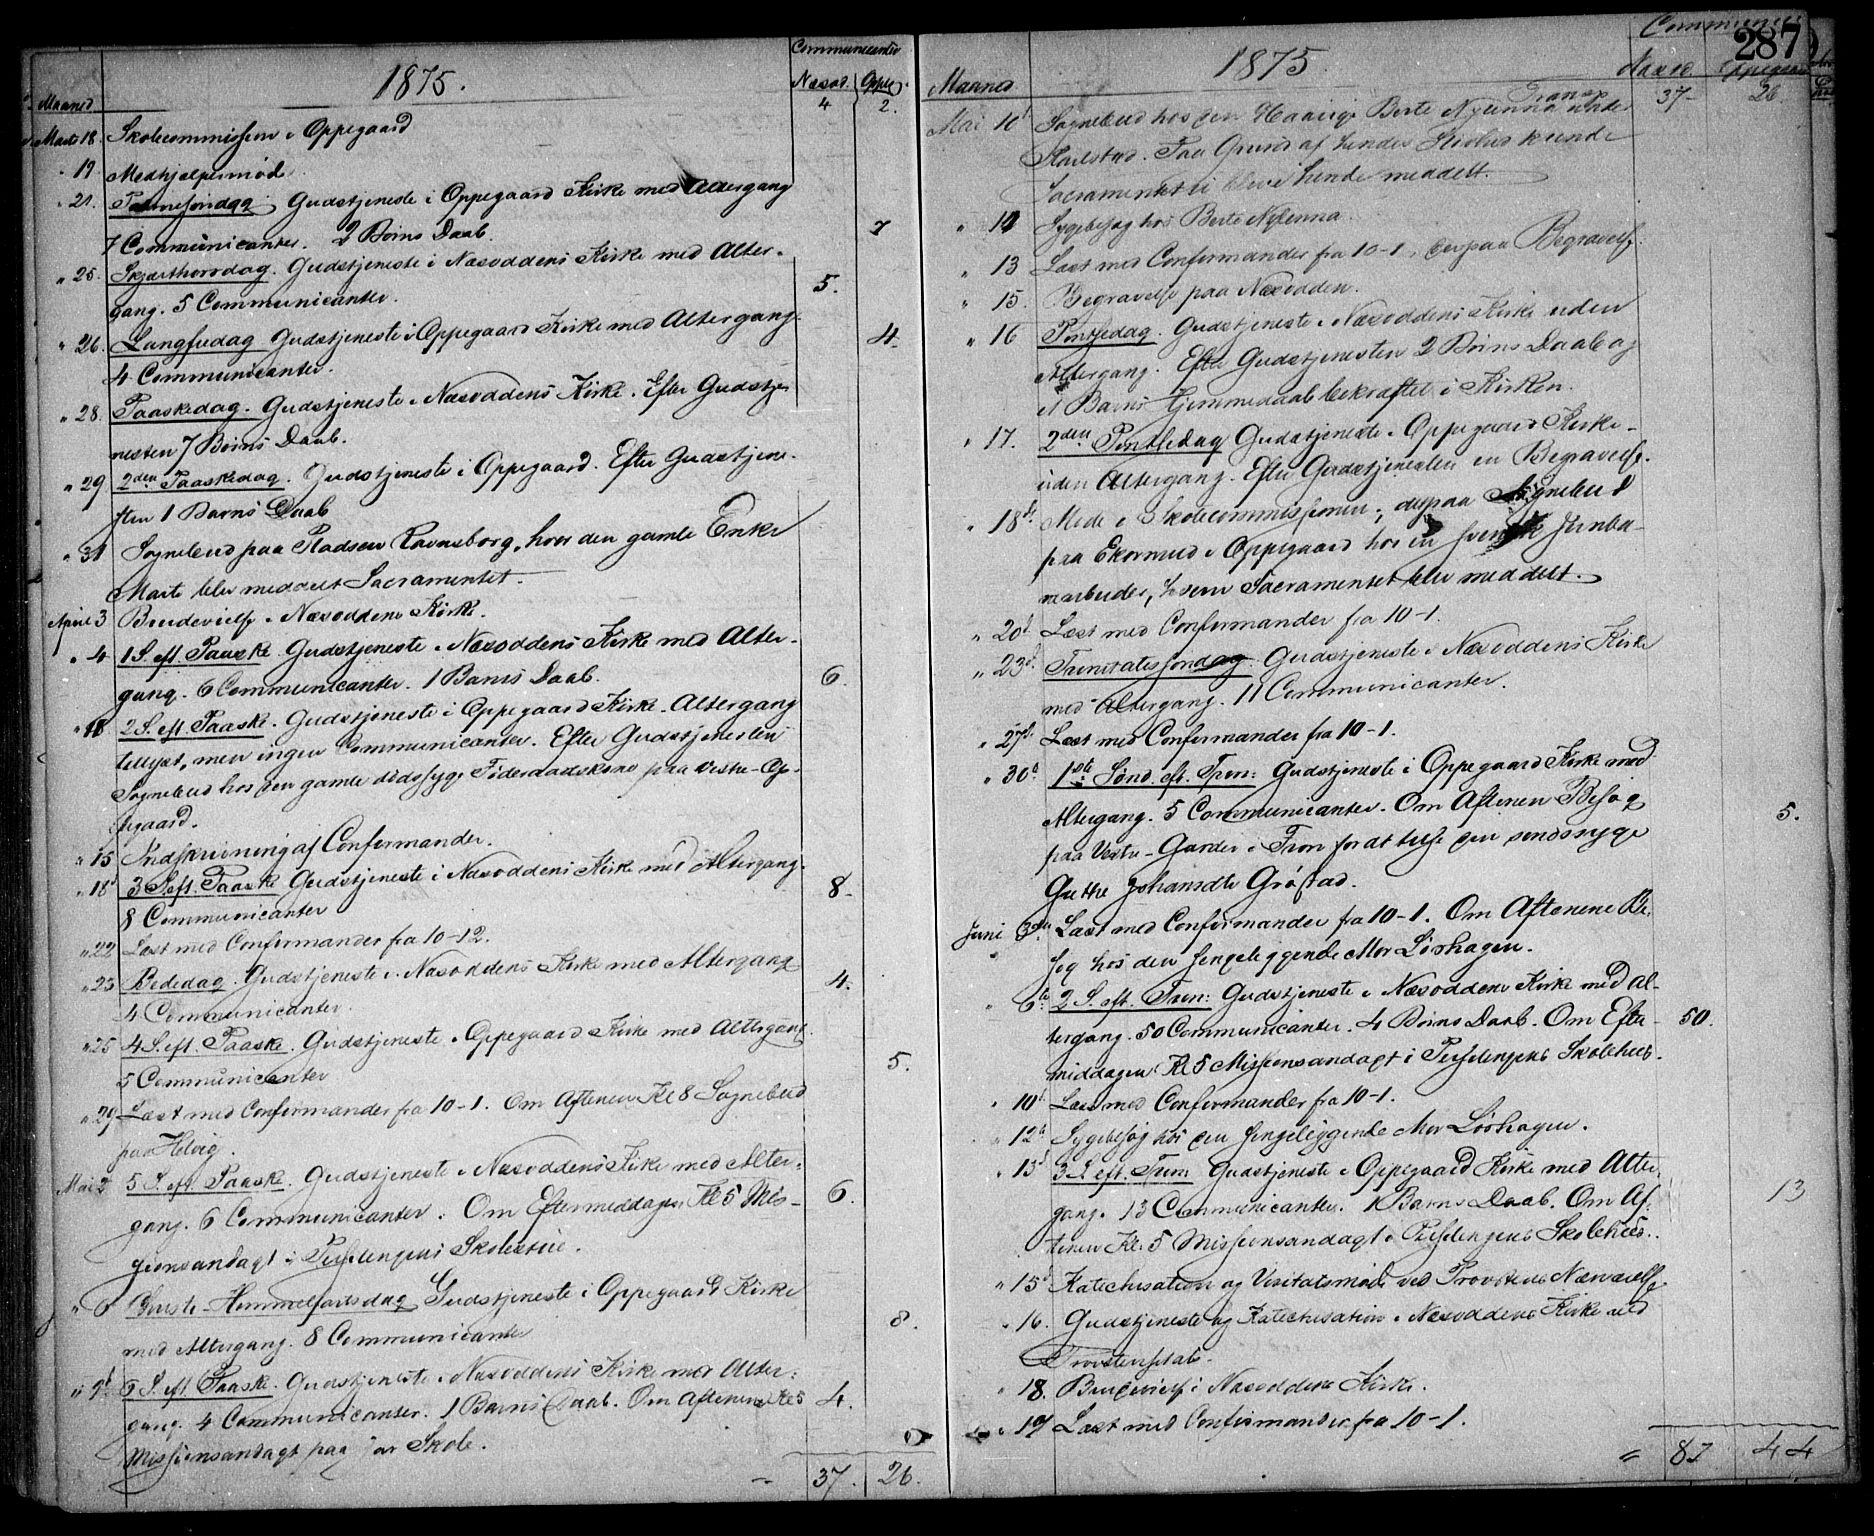 1875.
Communicanter
Maaned
Næsod. Oppeg.
4 2.
Marts 18. Skolecommission i Oppegaard
" 19 Medhjælpermøde
" 21. Palmesøndag. Gudstjeneste i Oppegaard Kirke med Altergang
7 Communicanter. 2 Børns Daab. 7
" 25. Skjærthorsdag. Gudstjeneste i Næsoddens Kirke med Alter-
gang. 5 Communicanter. 5.
" 26. Langfredag Gudstjeneste i Oppegaard Kirke med Altergang.
4 Communicanter. 4.
" 28. Paaskedag. Gudstjeneste i Næsoddens Kirke. Efter Gudstje-
nesten 7 Børns Daab.
" 29 2den Paaskedag. Gudstjeneste i Oppegaard. Efter Gudstjene-
sten 1 Barns Daab
" 31 Sognebud paa Pladsen Ravnsborg, hvor den gamle Enke
Marte blev meddelt Sacramentet.
April 3 Brudevielse i Næsoddens Kirke.
" 4 1 S. eft. Paaske. Gudstjeneste i Næsoddens Kirke med Alter-
gang. 6 Communicanter. 1 Barns Daab. 6.
" 11 2 S. eft. Paaske. Gudstjeneste i Oppegaard Kirke. Altergang
tillyst, men ingen Communicanter. Efter Gudstjenesten
Sognebud hos den gamle dødssyge Føderaadskone paa Vestre-Op-
pegaard.
" 15 Indskrivning af Confirmander.
" 18d 3 S. eft. Paaske Gudstjeneste i Næsoddens Kirke med Altergang.
8 Communicanter 8.
" 22 Læst med Confirmander fra 10-12.
" 23 Bededag. Gudstjeneste i Næsoddens Kirke med Altergang
4 Communicanter. 4.
" 25 4 S. eft. Paaske. Gudstjeneste i Oppegaard Kirke med Altergang.
5 Communicanter 5.
" 29 Læst med Confirmander fra 10-1. Om Aftenen Kl 8 Sognebud
paa Helvig.
Mai 2 5 S. eft. Paaske. Gudstjeneste i Næsoddens Kirke med Alter-
gang. 6 Communicanter. Om Eftermiddagen Kl 5 Mis- 6.
sionsandagt i Skolestue.
" 6 Christi-Himmelfartsdag Gudstjeneste i Oppegaard Kirke
med Altergang. 8 Communicanter 8.
" 9d 6 S. eft. Paaske. Gudstjeneste i Næsoddens Kirke med Alter-
gang. 4 Communicanter. 1 Barns Daab. Om Aftenen Kl 5 4.
Missionsandagt paa Skole.
37. 26.
287
1875.
Communic
Maaned
Næsod. Oppegaard
Transp. 37 26
Mai 10d Sognebud hos den Berte Nylenna under
Flaskstad. Paa Grund af hendes kunde
Sacramentet ei blive hende meddelt.
" 11 Sygebesøg hos Berte Nylenna.
" 13 Læst med Confirmander fra 10-1, derpaa Begravelse.
" 15. Begravelse paa Næsodden.
" 16 Pintsedag. Gudstjeneste i Næsoddens Kirke uden
Altergang. Efter Gudstjenesten 2 Børns Daab og
et Barns Hjemmedaab bekræftet i Kirken.
" 17. 2den Pintsedag Gudstjeneste i Oppegaard Kirke
uden Altergang. Efter Gudstjenesten en Begravelse.
" 18d. Møde i Skolecommissionen; derpaa Sognebud
paa Ekornrud i Oppegaard hos en svensk Jernba-
nearbeider, hvem Sacramentet blev meddelt.
" 20d Læst med Confirmander fra 10-1.
" 23d. Trinitatissøndag. Gudstjeneste i Næsoddens Kirke
med Altergang. 11 Communicanter.
" 27d. Læst med Confirmander fra 10-1.
" 30d. 1ste Sønd. eft. Trin: Gudstjeneste i Oppegaard Kirke med
Altergang. 5 Communicanter. Om Aftenen Besøg 5.
paa Vestre-Garder i Fron for at tilse den sindssyge
Johansdtr Grøstad.
Juni 3die Læst med Confirmander fra 10-1. Om Aftenen Be-
søg hos den sengeliggende Mor Lørhagen.
" 6te 2 S. eft. Trin: Gudstjeneste i Næsoddens Kirke med Al-
tergang. 50 Communicanter. 4 Børns Daab. Om Efter- 50.
middagen Kl 5 Missionsandagt i Skolehus.
" 10d. Læst med Confirmander fra 10-1.
" 12d. Sygebesøg hos den sengeliggende Mor Lørhagen.
" 13d 3 S. eft. Trin. Gudstjeneste i Oppegaard Kirke med Alter-
gang. 13 Communicanter. 1 Barns Daab. Om Af- 13
tenen Kl. 5 Missionsandagt i Skolehus.
" 15d Katechisation og Visitatsmøde ved Provstens Nærværelse.
" 16. Gudstjeneste og Katechisation i Næsoddens Kirke ved
" 18. Brudevielse i Næsoddens Kirke.
" 19 Læst med Confirmander fra 10-1.
87 44